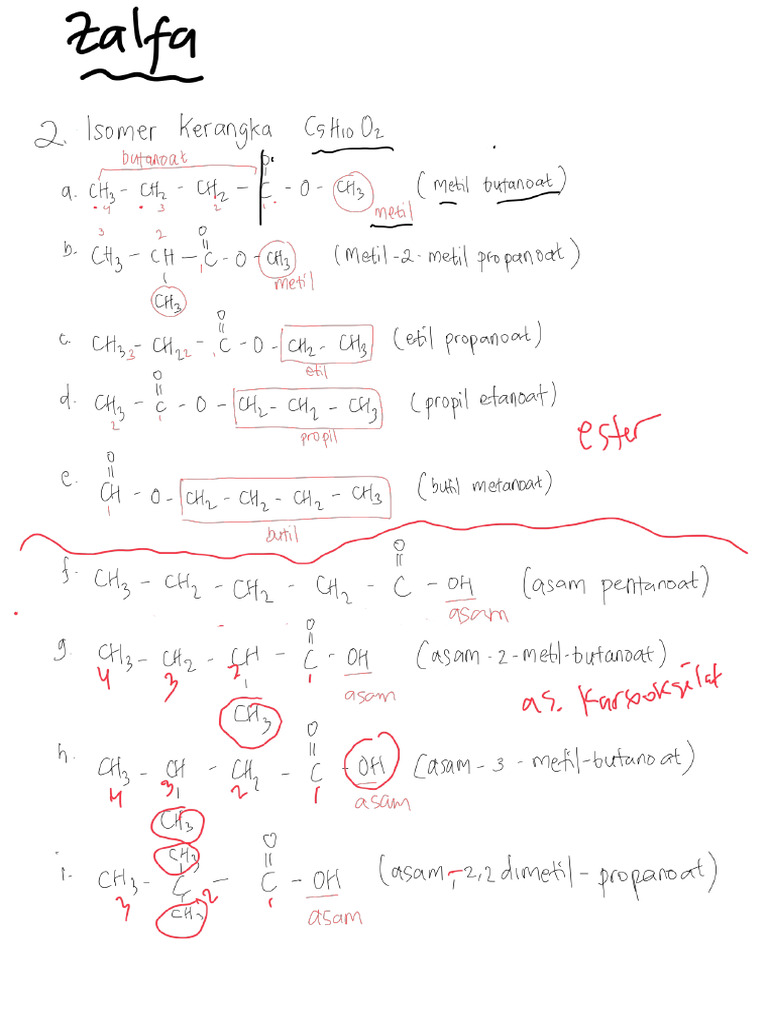 Zalfa
2. Isomer Kerangka C5H10O2
butanoat
O
a. CH3 - CH2 - CH2 - C - O - CH3 (metil butanoat)
4 3 2 1 metil
3 2 O
b. CH3 - CH - C - O - CH3 (Metil-2-metil propanoat)
1 metil
CH3
O
c. CH3 3 - CH2 2 - C - O - CH2 - CH3 (etil propanoat)
1 etil
O
d. CH3 - C - O - CH2 - CH2 - CH3 (propil etanoat)
2 1 propil
ester
O
e. CH - O - CH2 - CH2 - CH2 - CH3 (butil metanoat)
1 butil
O
f. CH3 - CH2 - CH2 - CH2 - C - OH (asam pentanoat)
asam
O
g. CH3 - CH2 - CH - C - OH (asam-2-metil-butanoat)
4 3 2 1 asam
CH3
as. Karbooksilat
O
h. CH3 - CH - CH2 - C - OH (asam-3-metil-butanoat)
4 3 2 1 asam
CH3
CH3 O
i. CH3 - C - C - OH (asam-2,2 dimetil-propanoat)
3 2 1 asam
CH3